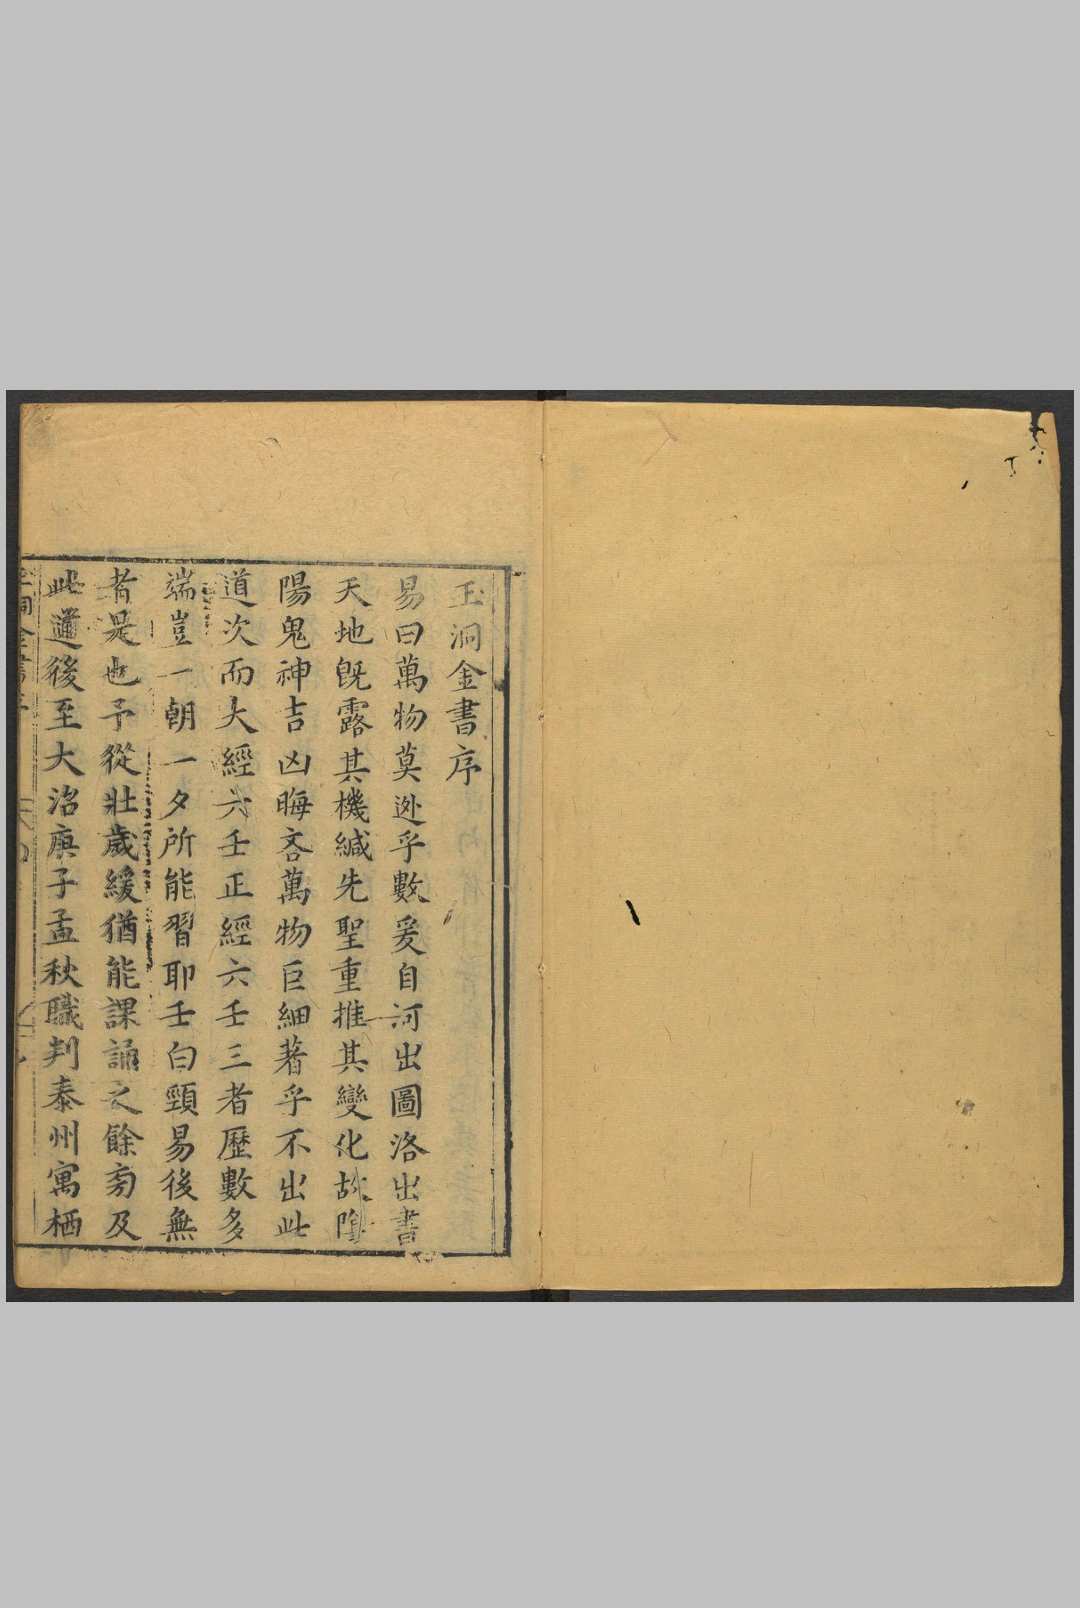 玉洞金書序
易曰萬物莫逃乎數爰自河出圖洛出書
天地旣露其機緘先聖重推其變化故陰
陽鬼神吉凶晦吝萬物巨細著乎不出此
道次而大經六壬正經六壬三者歷數多
端豈一朝一夕所能習耶壬白頸易後無
者是也予從壯歲緩猶能課誦之餘旁及
此道後至大治庚子孟秋職判泰州寓栖
玉洞金書序